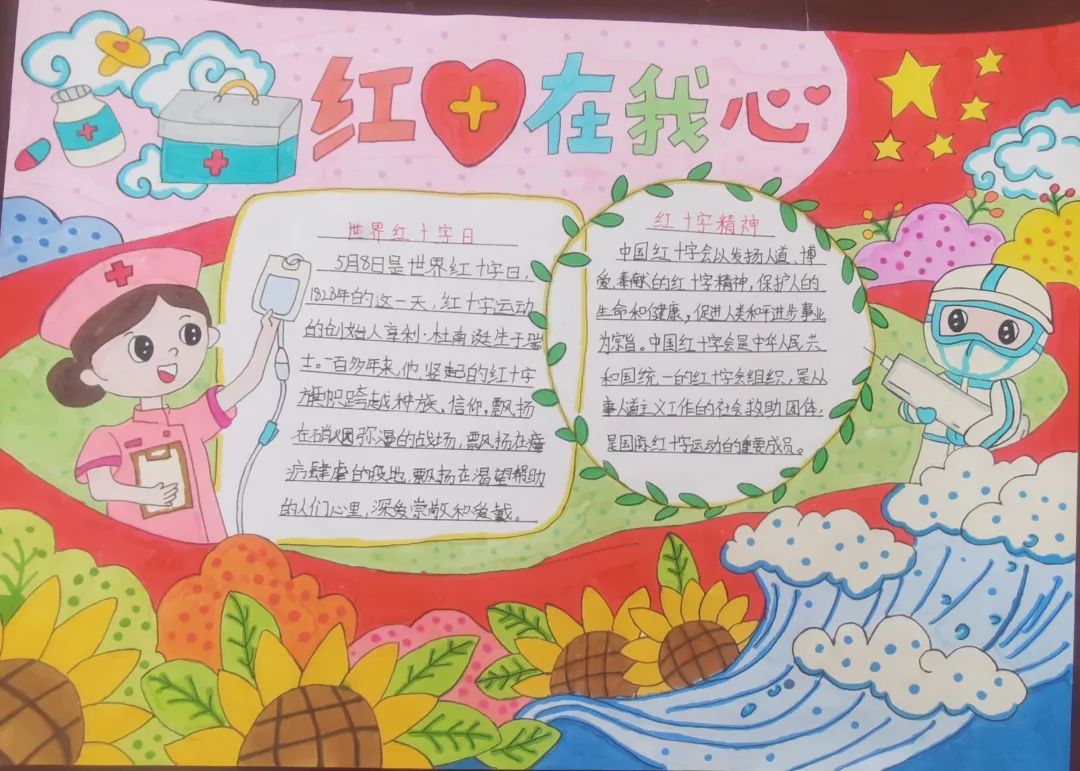 红十在我心
世界红十字日
5月8日是世界红十字日,
1828年的这一天,红十字运动
的创始人亨利·杜南诞生于瑞
士。一百多年来,他竖起的红十字
旗帜跨越种族、信仰,飘扬
在硝烟弥漫的战场,飘扬在瘟
疫肆虐的疫地,飘扬在渴望帮助
的人们心里,深受崇敬和爱戴。
红十字精神
中国红十字会以发扬人道、博
爱、奉献的红十字精神,保护人的
生命和健康,促进人类和平进步事业
为宗旨。中国红十字会是中华人民共
和国统一的红十字会组织,是从
事人道主义工作的社会救助团体,
是国际红十字运动的重要成员。